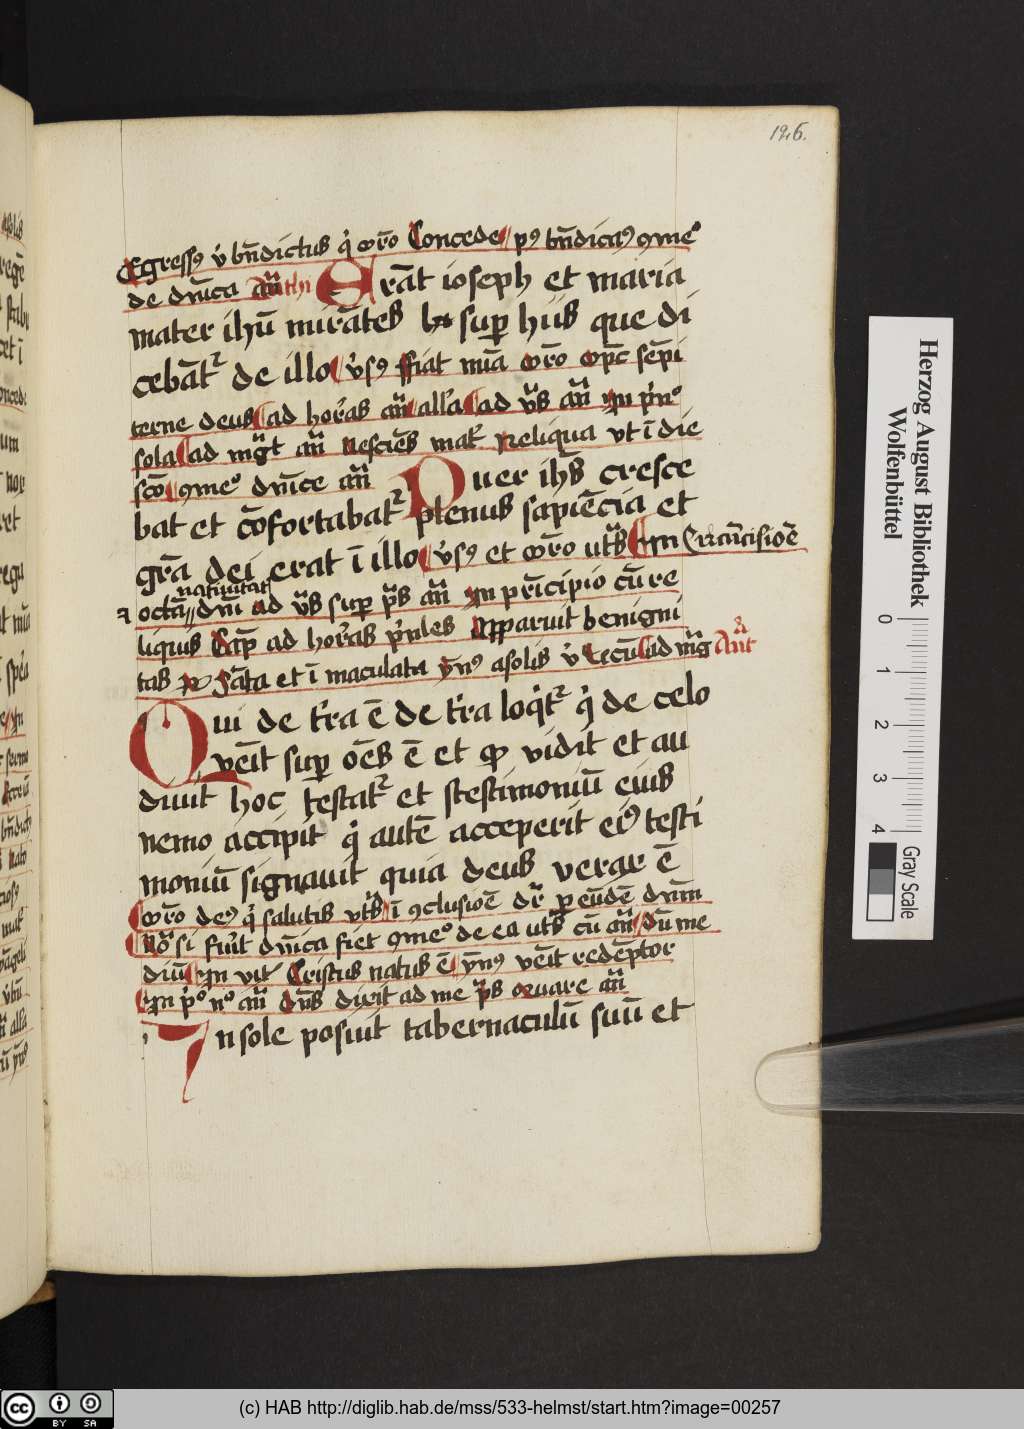 126.
Egressꝯ v̓ bn̄dictus q̓ orō Concede pꝯ bn̄dicaꝯ ꝯmeº
de dn̄ica an̄ Erāt ioseph et maria
mater ihū mirātes sup̱ hiis que di
cebāt᷑ de illo v̓sꝯ ffiat mīa orō Op̄c sēpi
terne deus ad horas an̄ all'a ad v̄s an̄ In p̓moº
sola ad mḡt an̄ Nesciēs mat᷑ Reliqua vt ī die
scō ꝯmeº dn̄ice an̄ Puer ihūs cresce
bat et cōfortabat᷑ plenus sapiēcia et
grā dei erat ī illo v̓sꝯ et orō ut᷑s In Circūcisiōē
natiuitat᷑
octā dn̄i ad v̄s sup̱ p̄s an̄ In prīcipio cū re
liquis Cap̄ ad horas p̓mles Apparuit benigni
tas Rº sāta et ī maculata ȳnꝯ asolis v̓ Vecū ad mḡ Ant
Qui de tr̄a ē de tr̄a loq̓t᷑ q̓ de celo
venīt sup̱ oēs ē et qd̄ vidit et au
diuit hoc testat᷑ et testimoniū eius
nemo accipit q̓ autē acceperit eiꝯ testi
moniū signauit quia deus verax ē
orō deꝯ q̓ salutis vt᷑s ī ꝯclusiōē dr̄ p̱ eūdē dn̄m
Nōº si fu̓it dn̄ica fiet ꝯmeº de ea ut᷑s cū an̄ dū me
diū In vit᷑ Cristus natus ē ȳnꝯ venīt redēptor
In p̓º nº an̄ Dn̄s dixit ad me p̄s Quare an̄
In sole posuit tabernaculū suū et
Herzog August Bibliothek
Wolfenbüttel
0 1 2 3 4
Gray Scale
cc BY SA
(c) HAB http://diglib.hab.de/mss/533-helmst/start.htm?image=00257